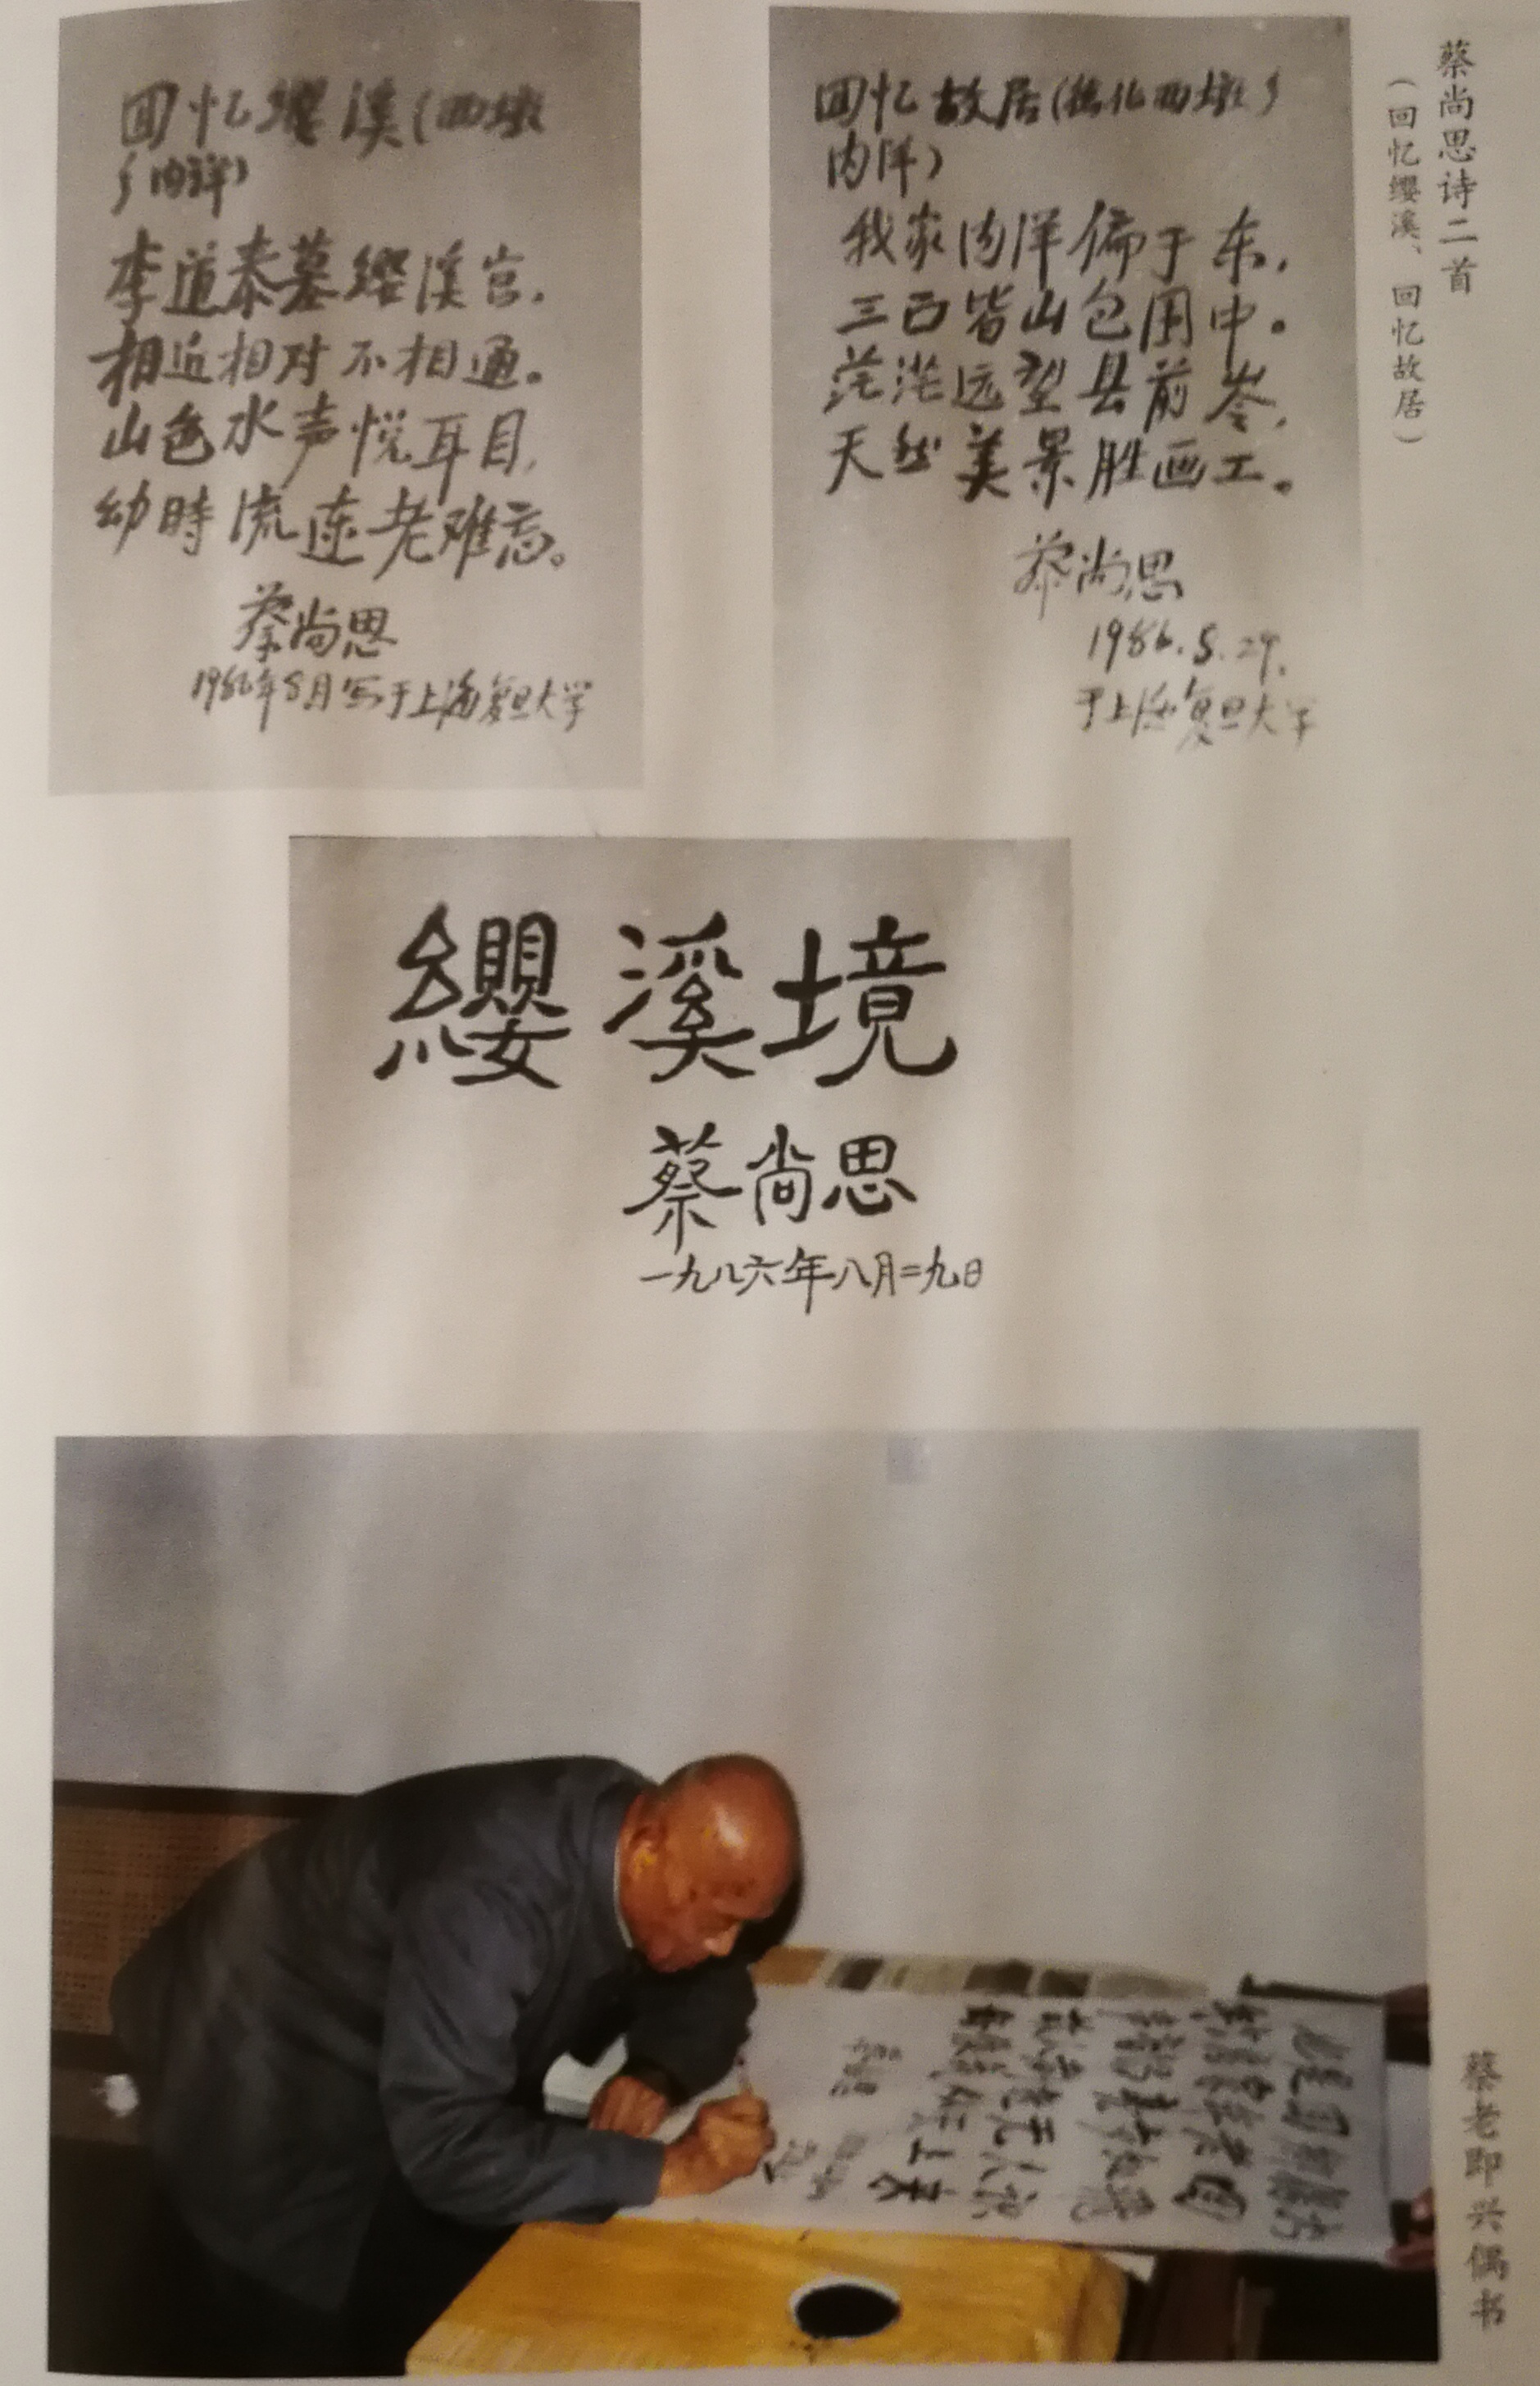 蔡尚思诗二首
（回忆缨溪、回忆故居）
回忆缨溪（西墩
乡内洋）
李道泰墓缨溪宫，
相近相对不相通。
山色水声悦耳目，
幼時流连老难忘。
蔡尚思
1986年8月写于上海复旦大学
回忆故居（德化西墩乡
内洋）
我家内洋偏于东，
三面皆山包围中。
茫茫远望县前岑，
天然美景胜画工。
蔡尚思
1986.5.29.
于上海复旦大学
纓溪境
蔡尚思
一九八六年八月二九日
蔡老即兴偶书